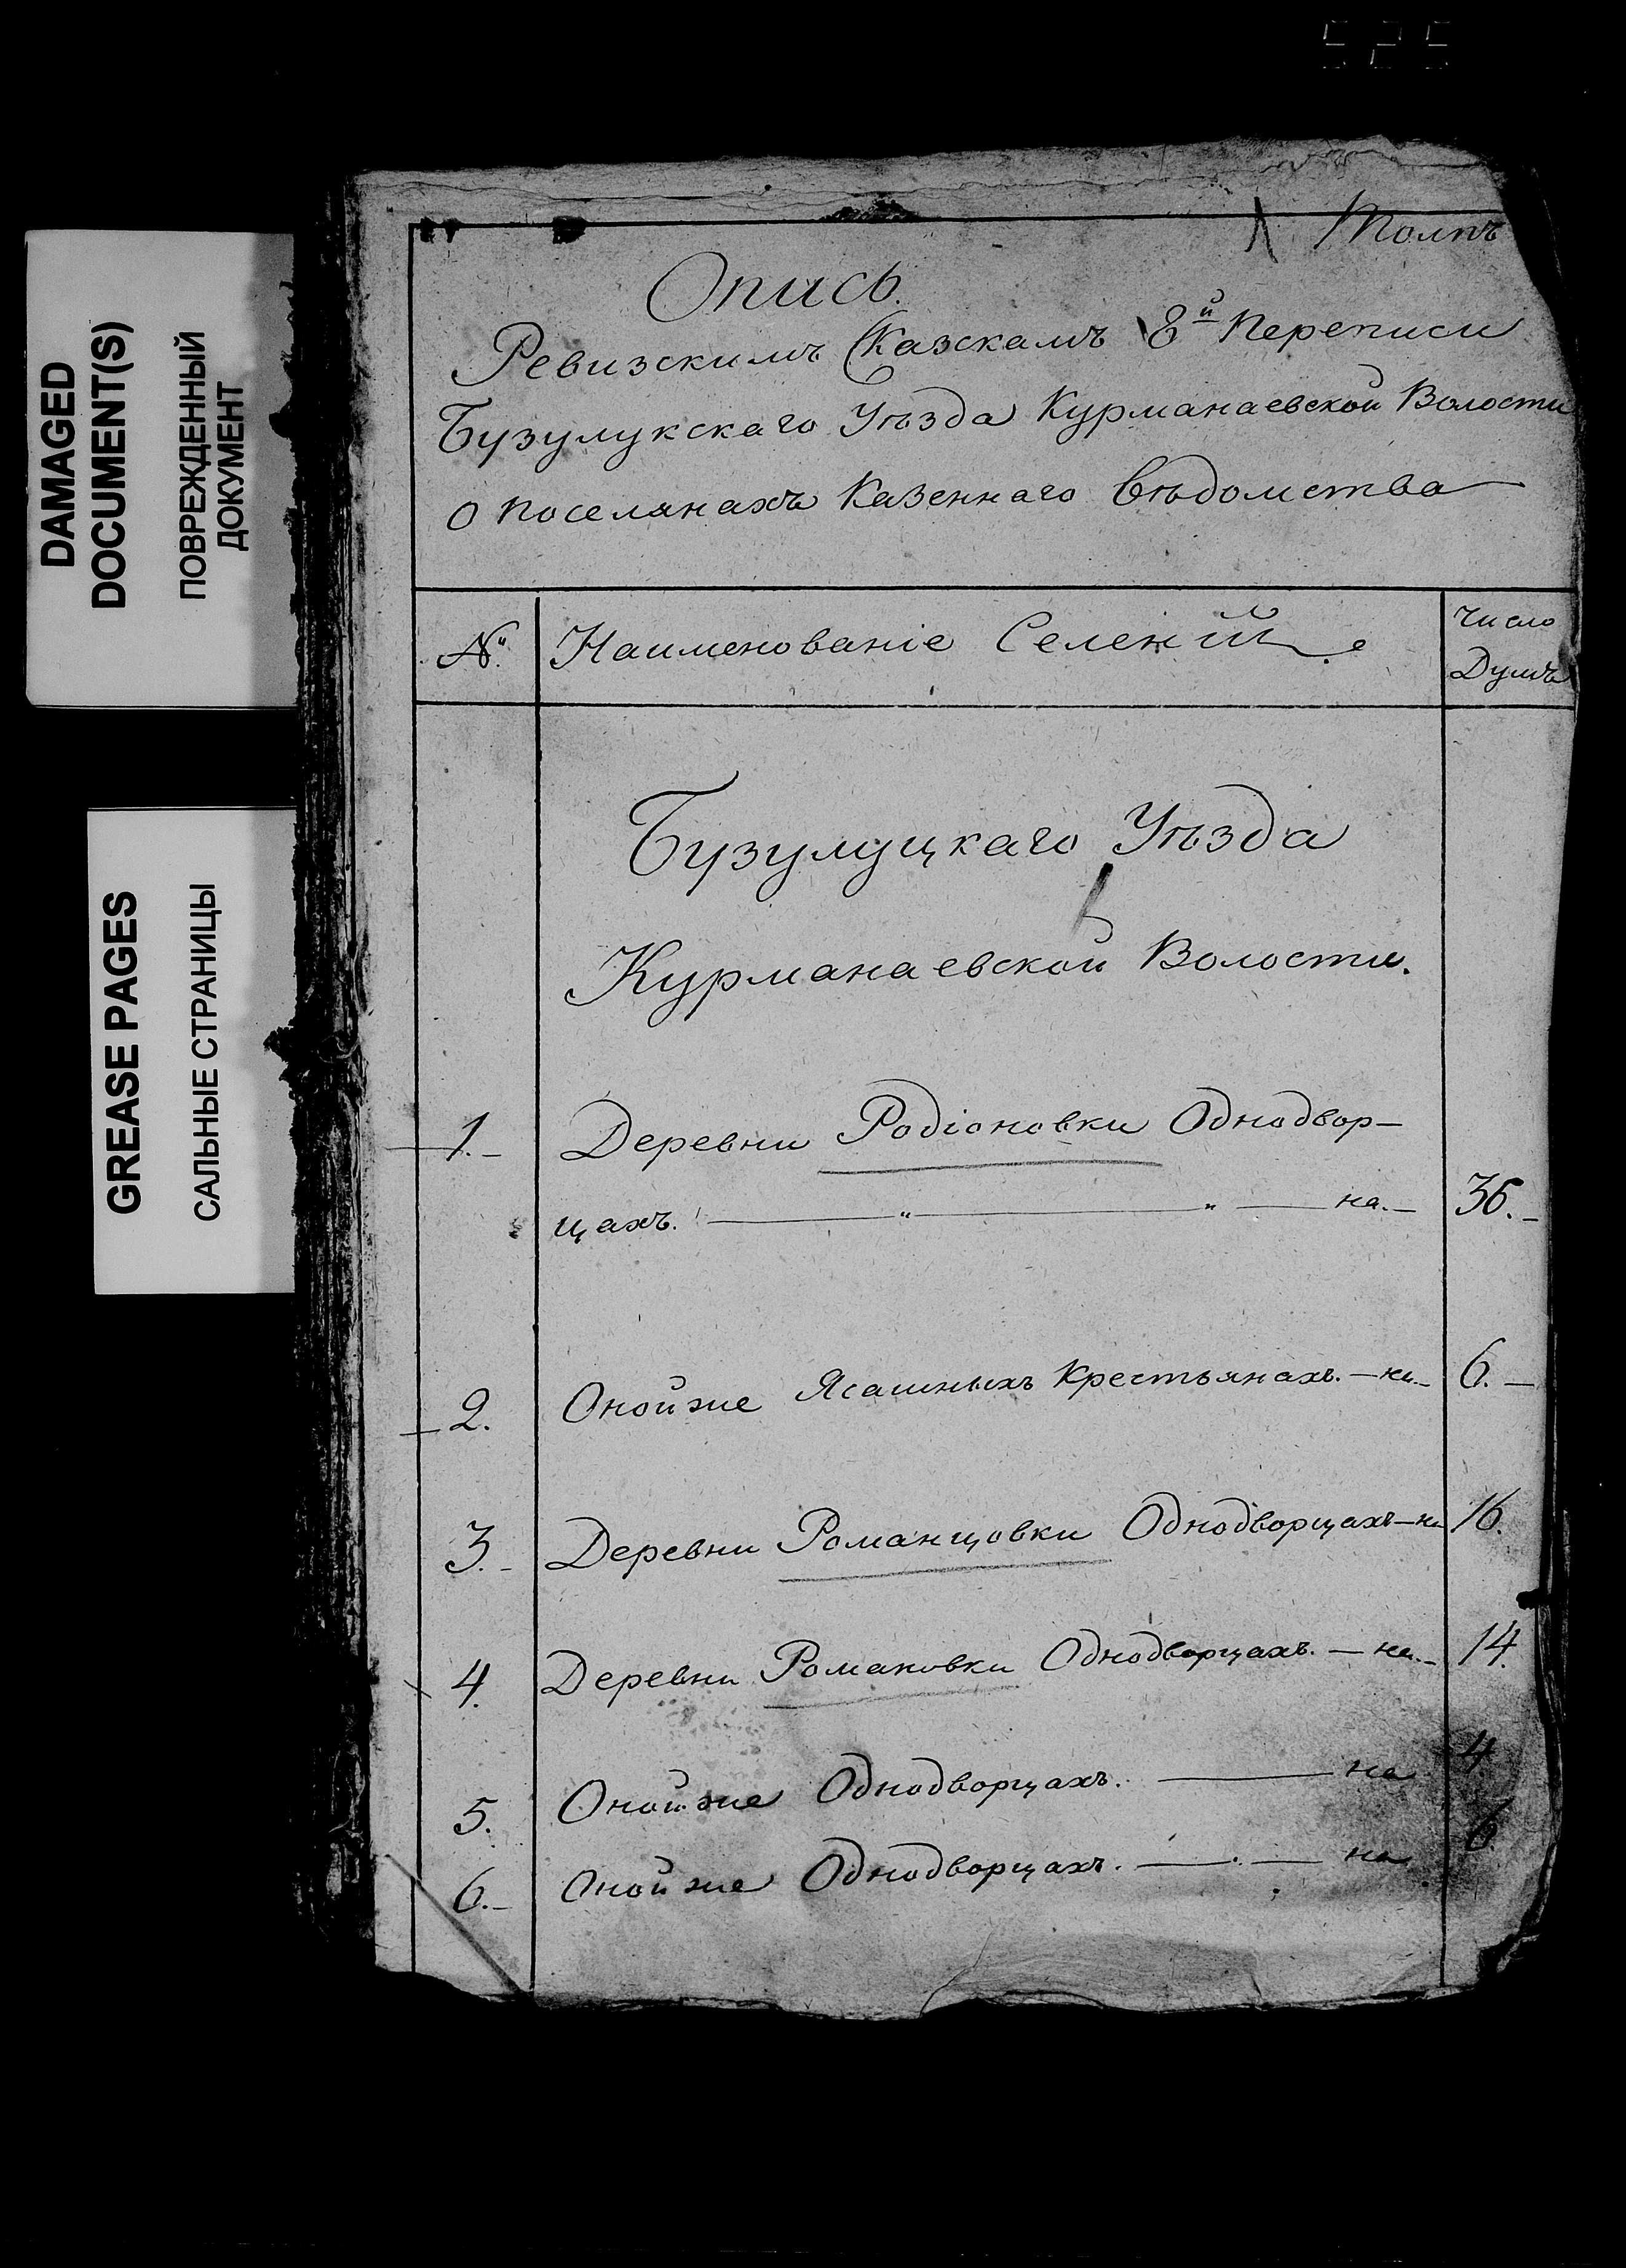 525
DAMAGED
DOCUMENT(S)
ПОВРЕЖДЕННЫЙ
ДОКУМЕНТ
GREASE PAGES
САЛЬНЫЕ СТРАНИЦЫ
Опись.
Ревизскимъ Сказскамъ 8й переписи
Бузулукскаго Уѣзда Курманаевской Волости
о поселянахъ казеннаго вѣдомства
№ Наименованіе Селеній. Число
Душъ
Бузулуцкаго Уѣзда
Курманаевской Волости.
1. Деревни Родіоновки Однодвор-
цахъ. на. 36.
2. Оной же Ясашныхъ крестьянахъ. на. 6.
3. Деревни Романцовки Однодворцахъ на 16.
4. Деревни Романовки Однодворцахъ. на. 14.
5. Оной же Однодворцахъ. на 4
6. Оной же Однодворцахъ. на 6.